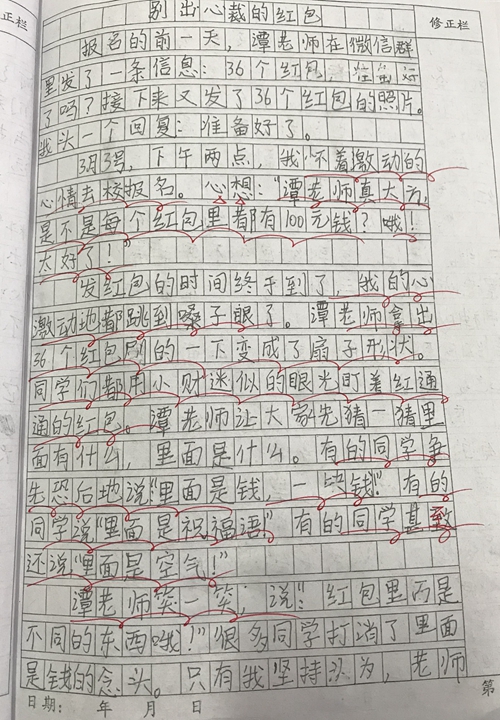 别出心裁的红包
修正栏
正栏
报名的前一天，谭老师在微信群
里发了一条信息：36个红包，准备好
了吗？接下来又发了36个红包的照片。
我头一个回复：准备好了。
3月3号，下午两点，我怀着激动的
心情去校报名。心想：“谭老师真大方，
是不是每个红包里都有100元钱？哦！
太好了！”
发红包的时间终于到了，我的心
激动地都跳到嗓子眼了。谭老师拿出
36个红包刷的一下变成了扇子形状。
同学们都用小财迷似的眼光盯着红通
通的红包。谭老师让大家先猜一猜里
面有什么，里面是什么。有的同学争
先恐后地说“里面是钱，一块钱”有的
同学说“里面是祝福语”有的同学甚至
还说“里面是空气！”
谭老师笑一笑，说：“红包里面是
不同的东西哦！”很多同学打消了里面
是钱的念头。只有我坚持认为，老师
第
日期： 年 月 日